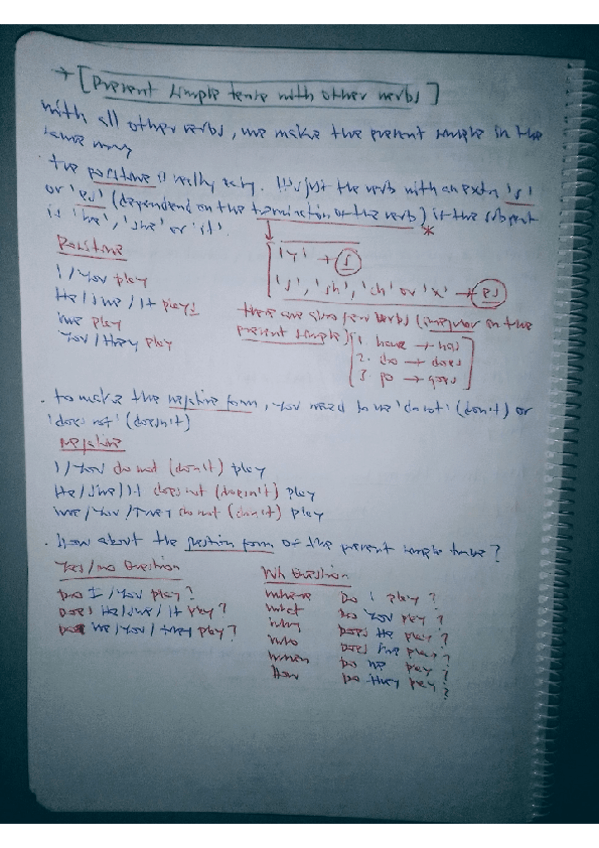 → [Present simple tense with other verbs]
With all other verbs, we make the present simple in the
same way
. The positive is really easy. It's just the verb with an extra 's'
or 'es' (dependend on the termination of the verb) if the subject
is 'he', 'she' or 'it'.
*
Positive
I / You play
He / she / It plays
We play
You / They play
'y' + s
's', 'sh', 'ch' or 'x' → es
there are also few verbs (irregular in the
present simple)
1. have → has
2. do → does
3. go → goes
. to make the negative form, you need to use 'do not' (don't) or
'does not' (doesn't)
Negative
I / You do not (don't) play
He / She / It does not (doesn't) play
We / You / They do not (don't) play
. How about the question form of the present simple tense?
Yes / no Question
Do I / You play?
Does He / she / it play?
Do We / You / they play?
Wh Question
Where Do I play?
What Do You play?
Why Does He play?
Who Does she play?
When Do we play?
How Do they play?